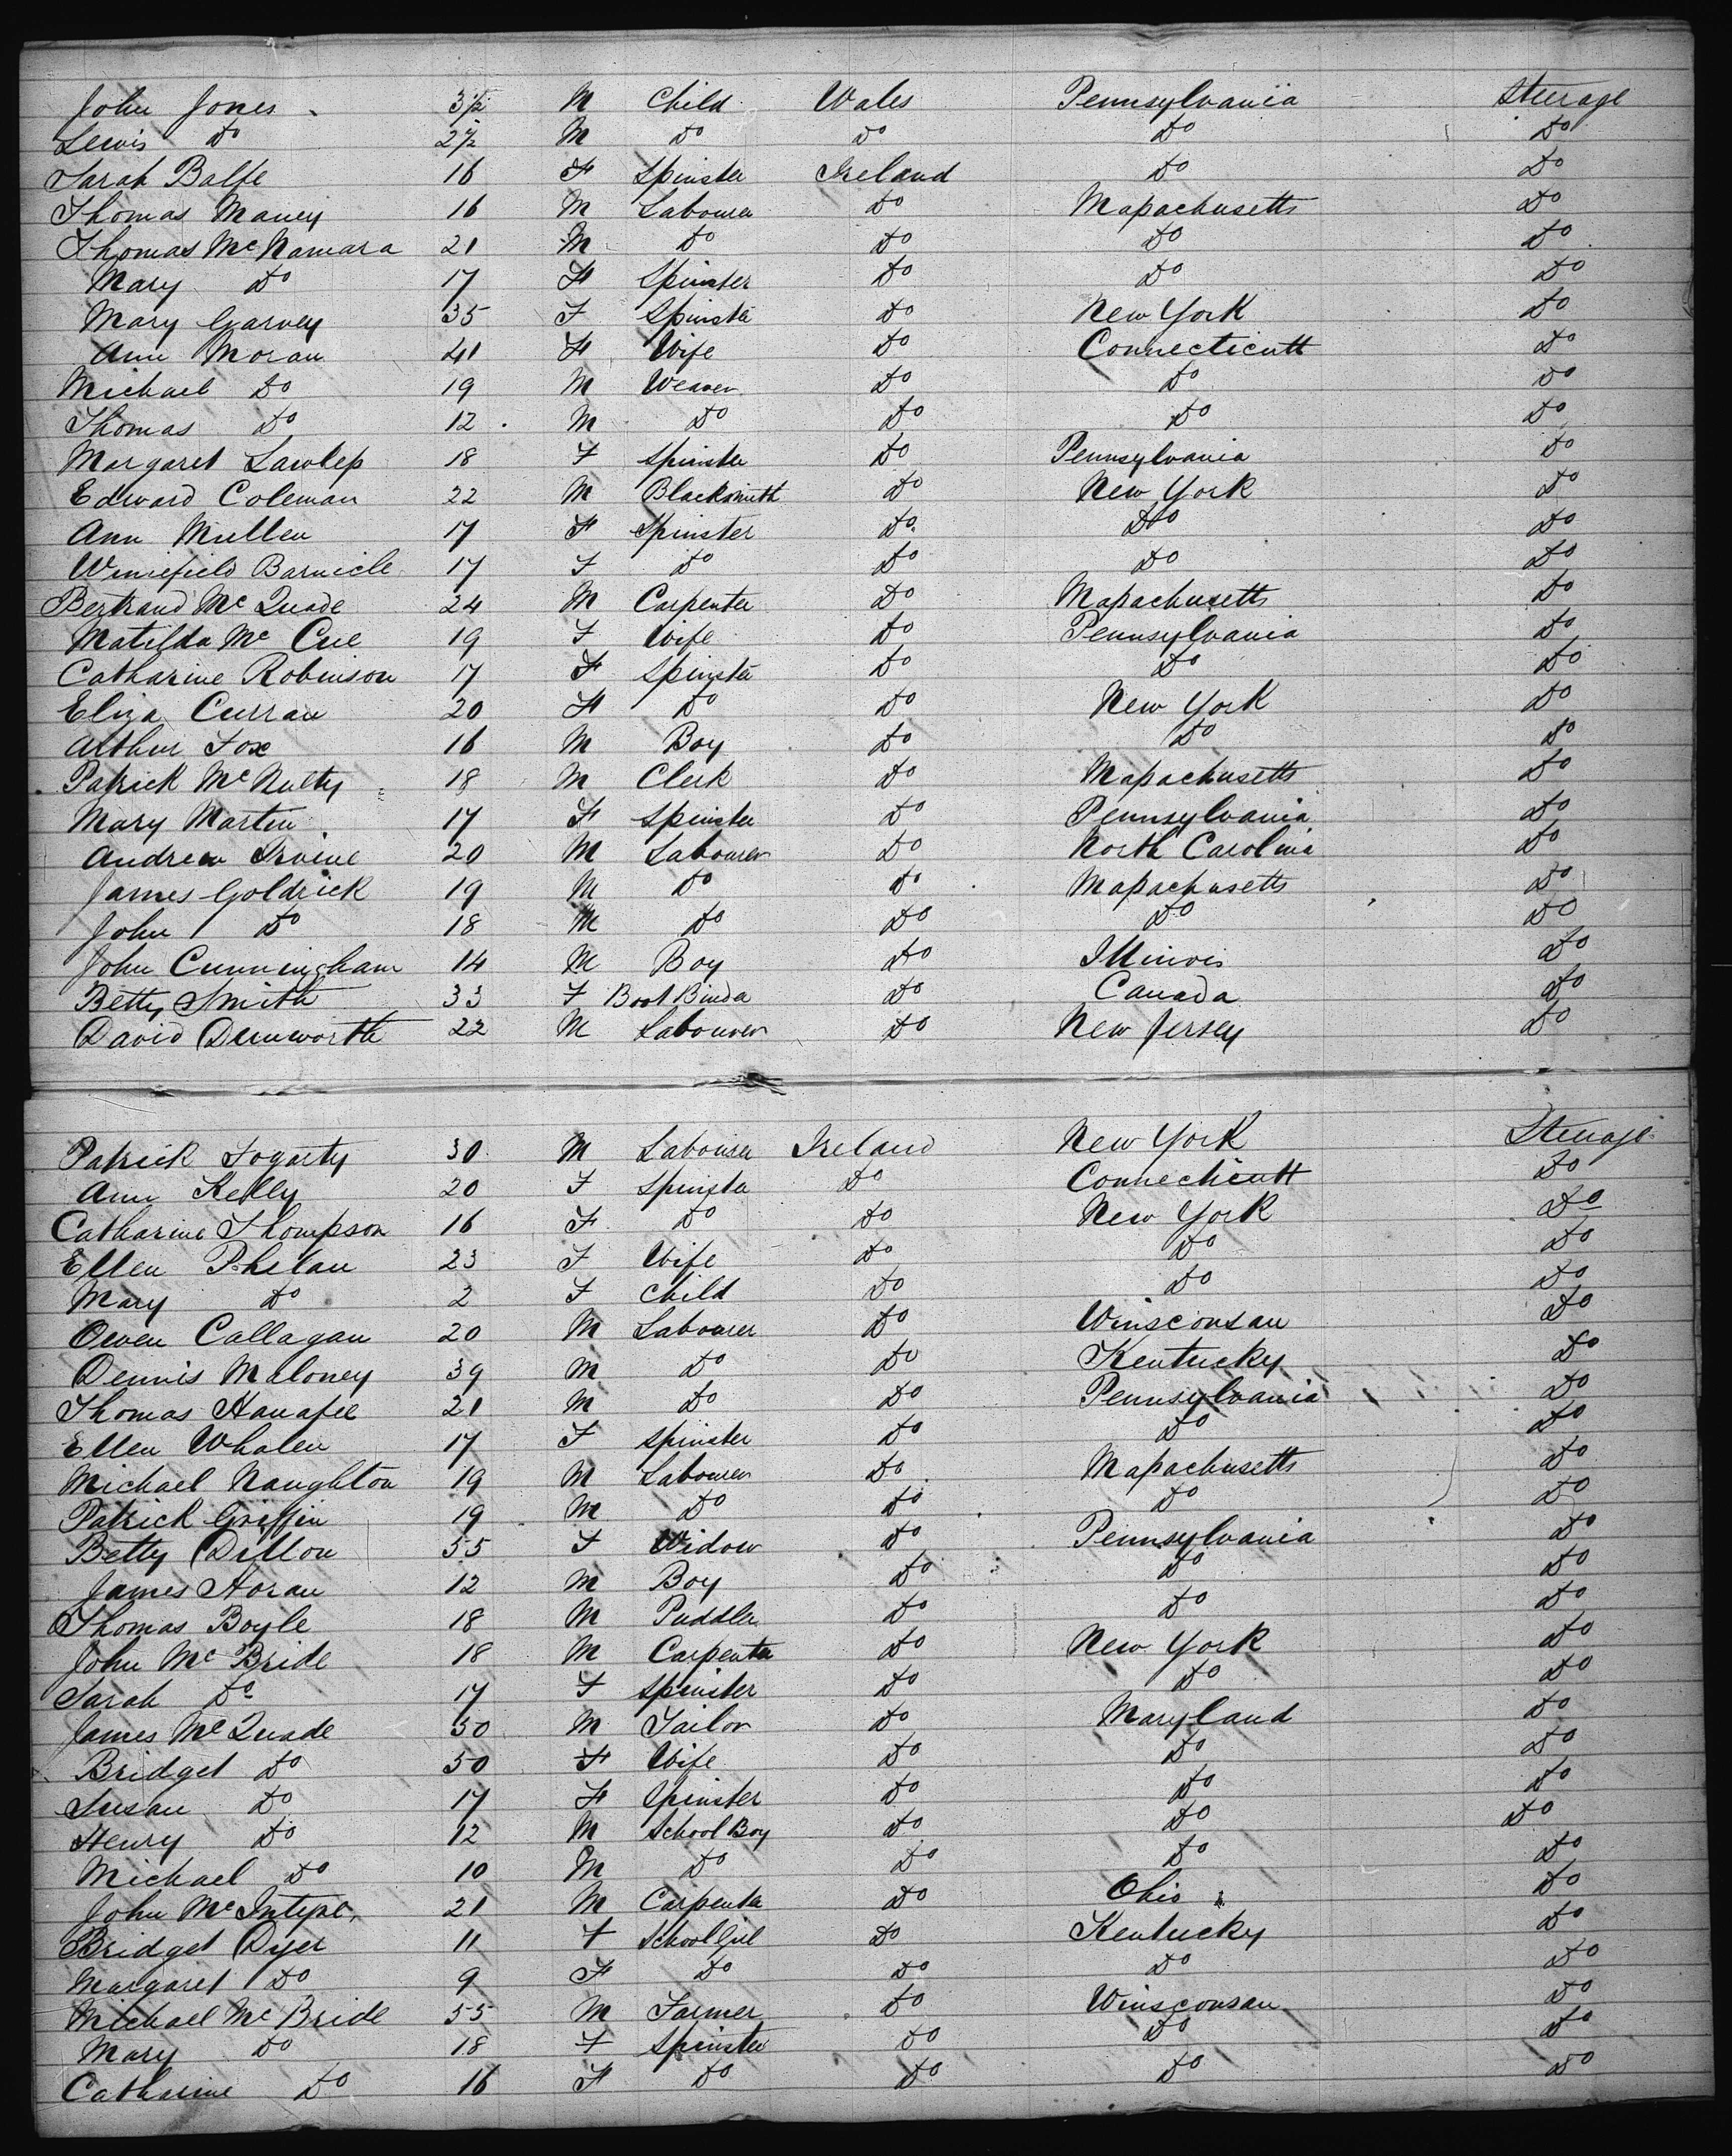 John Jones 3½ M Child Wales Pennsylvania Steerage
Lewis Do 2½ M Do Do Do Do
Sarah Balfe 16 F Spinster Ireland Do Do
Thomas Maney 16 M Labourer Do Massachusetts Do
Thomas McNamara 21 M Do Do Do Do
Mary Do 17 F Spinster Do Do Do
Mary Garvey 35 F Spinster Do New York Do
Ann Moran 41 F Wife Do Connecticutt Do
Michael Do 19 M Weaver Do Do Do
Thomas Do 12 M Do Do Do Do
Margaret Lawless 18 F Spinster Do Pennsylvania Do
Edward Coleman 22 M Blacksmith Do New York Do
Ann Mullen 17 F Spinster Do Do Do
Winiefield Barnicle 17 F Do Do Do Do
Bertrand McQuade 24 M Carpenter Do Massachusetts Do
Matilda McCue 19 F Wife Do Pennsylvania Do
Catharine Robinson 17 F Spinster Do Do Do
Eliza Curran 20 F Do Do New York Do
Arthur Fox 16 M Boy Do Do Do
Patrick McNulty 18 M Clerk Do Massachusetts Do
Mary Martin 17 F Spinster Do Pennsylvania Do
Andrew Irvine 20 M Labourer Do North Carolina Do
James Goldrick 19 M Do Do Massachusetts Do
John Do 18 M Do Do Do Do
John Cunningham 14 M Boy Do Illinois Do
Betty Smith 33 F Boot Binder Do Canada Do
David Dunworth 22 M Labourer Do New Jersey Do
Patrick Fogarty 30 M Labourer Ireland New York Steerage
Ann Kelly 20 F Spinster Do Connecticutt Do
Catharine Thompson 16 F Do Do New York Do
Ellen Phelan 23 F Wife Do Do Do
Mary Do 2 F Child Do Do Do
Owen Callagan 20 M Labourer Do Winsconsan Do
Dennis Maloney 39 M Do Do Kentucky Do
Thomas Hanafee 21 M Do Do Pennsylvania Do
Ellen Whalen 17 F Spinster Do Do Do
Michael Naughton 19 M Labourer Do Massachusetts Do
Patrick Griffin 19 M Do Do Do Do
Betty Dillon 55 F Widow Do Pennsylvania Do
James Horan 12 M Boy Do Do Do
Thomas Boyle 18 M Puddler Do Do Do
John McBride 18 M Carpenter Do New York Do
Sarah Do 17 F Spinster Do Do Do
James McQuade 50 M Tailor Do Maryland Do
Bridget Do 50 F Wife Do Do Do
Susan Do 17 F Spinster Do Do Do
Henry Do 12 M School Boy Do Do Do
Michael Do 10 M Do Do Do Do
John 21 M Carpenter Do Ohio Do
Bridget Dyer 11 F School Girl Do Kentucky Do
Margaret Do 9 F Do Do Do Do
Michael McBride 55 M Farmer Do Winsconsan Do
Mary Do 18 F Spinster Do Do Do
Catharine Do 16 F Do Do Do Do